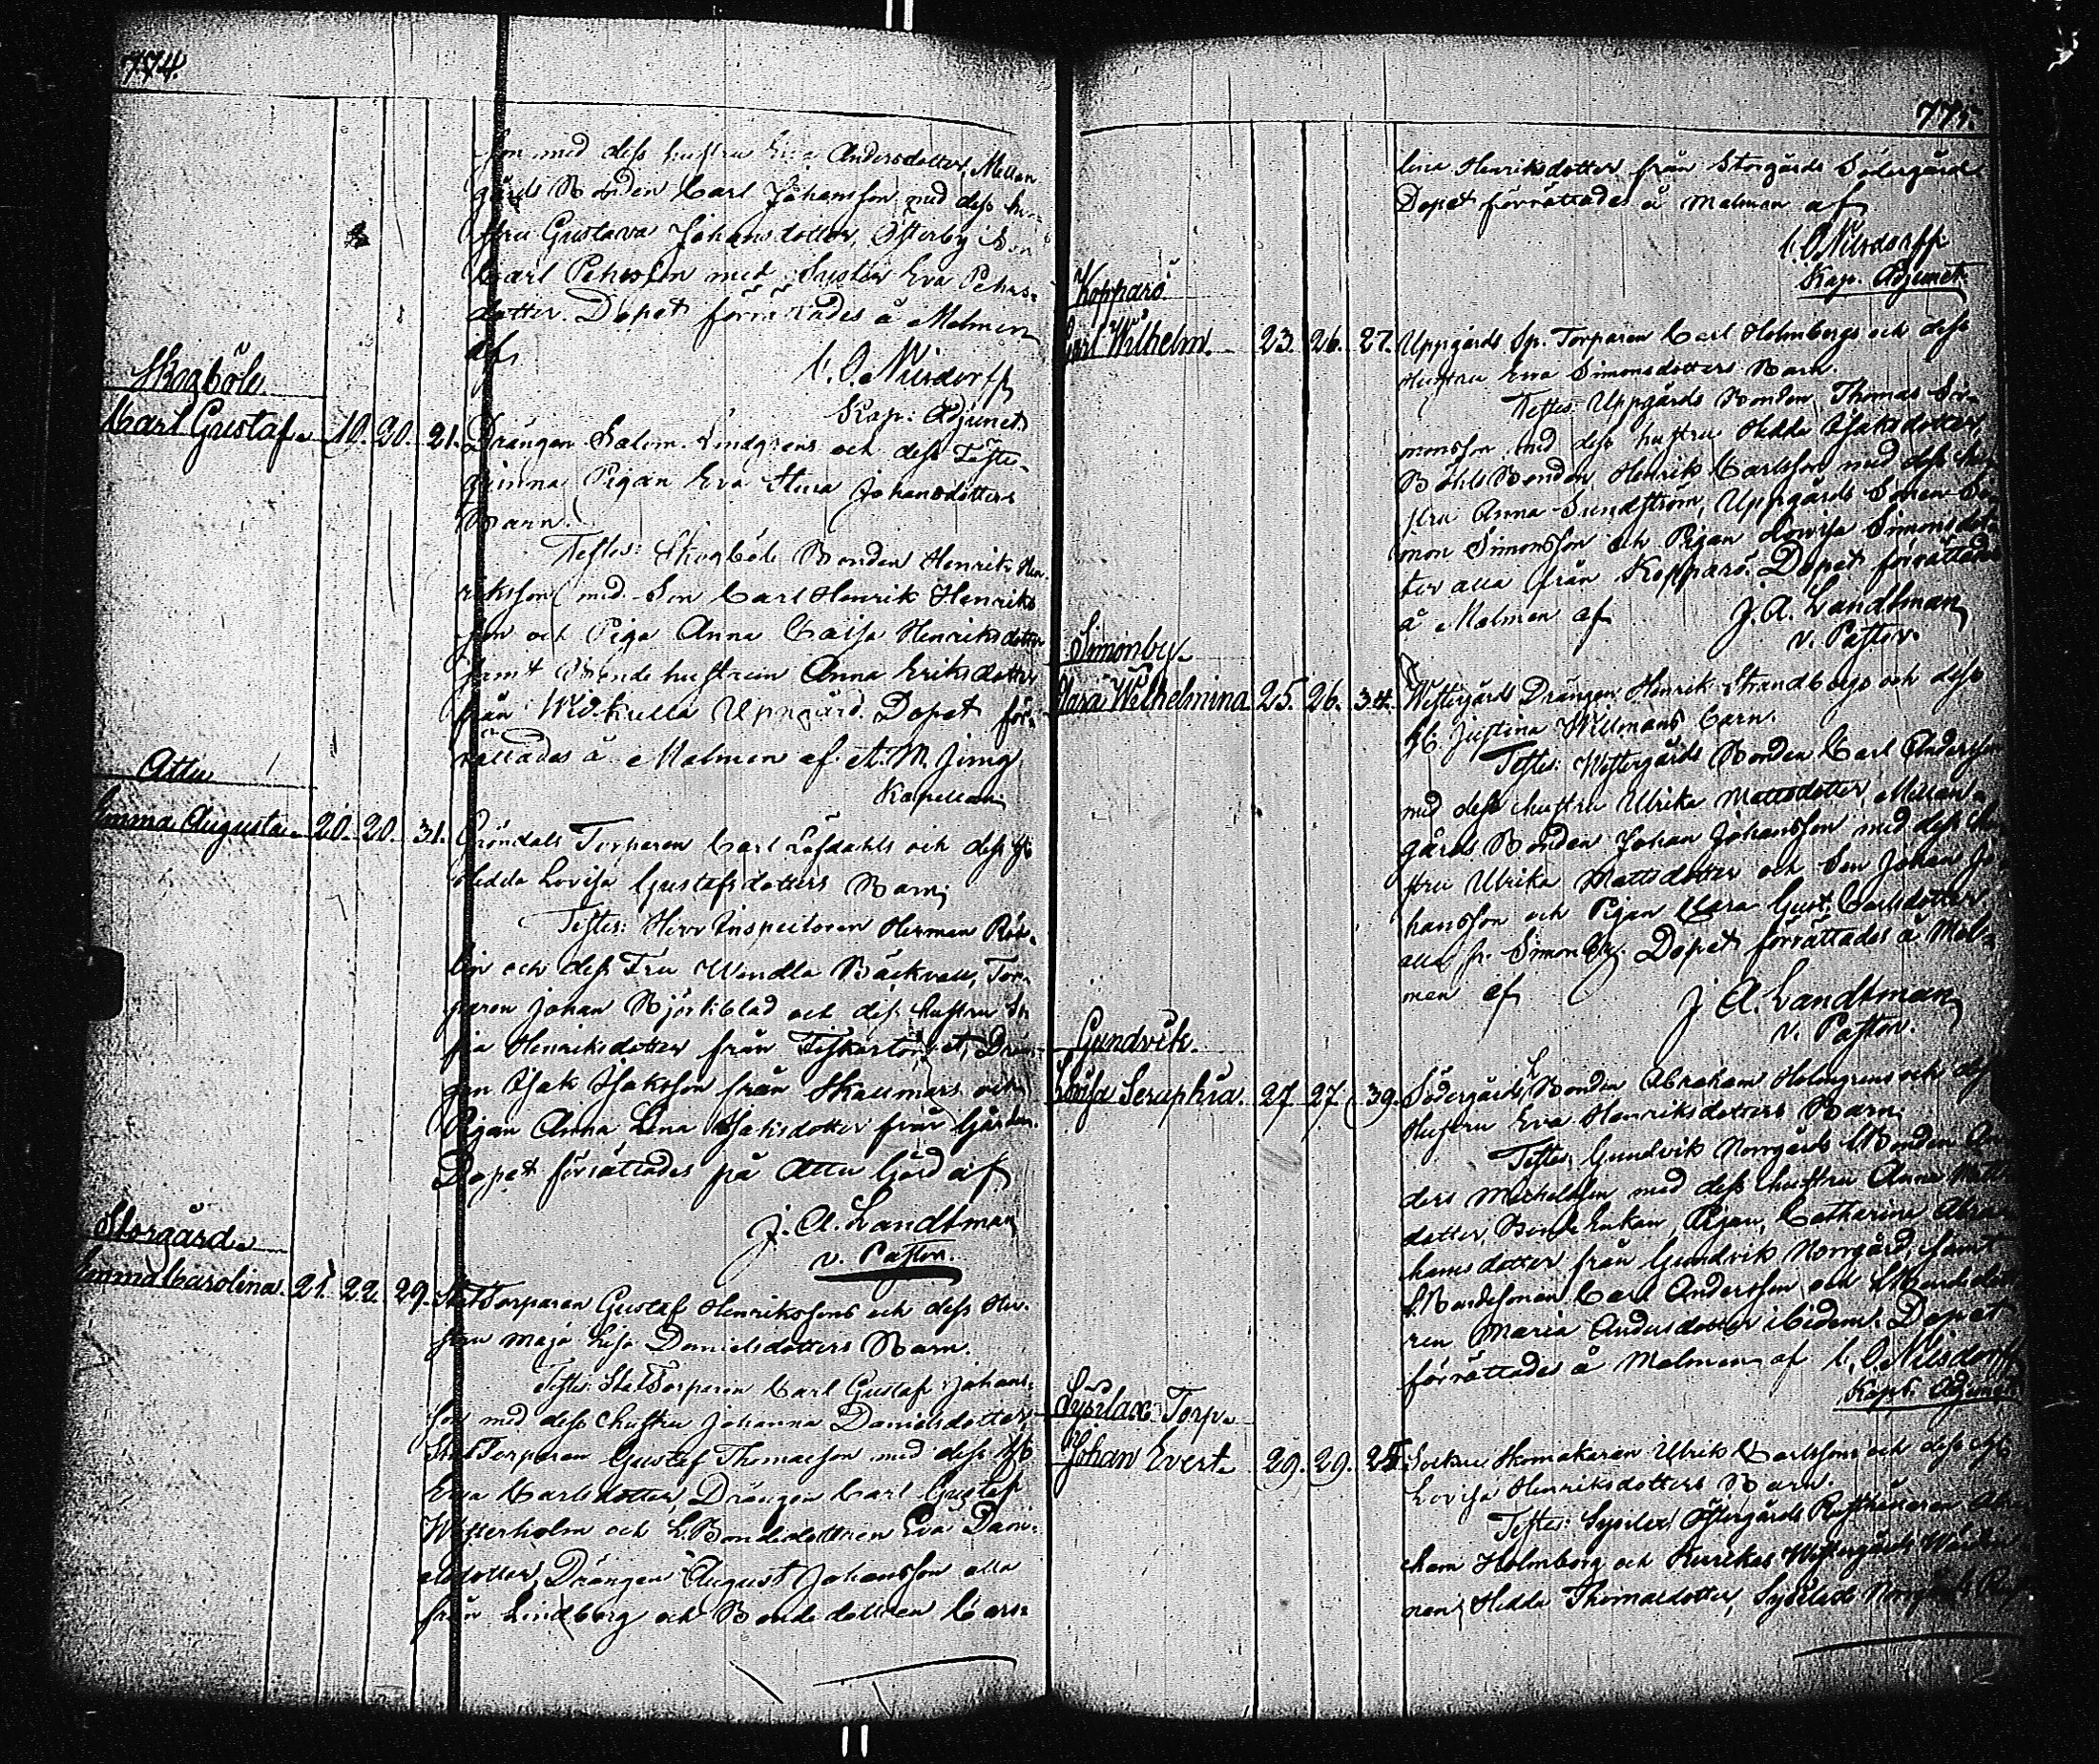 774.
son med dess hustru Eva Andersdotter, Mellan
gårds Bonden Carl Johansson med dess hu-
stru Gustava Johansdotter, Österby Son
Carl Pehrsson med Syster Eva Pehrs-
dotter. Dopet förrättades å Malmen
af
C. O. Nilsdorff
Kap: Adjunct
Skogböle
Carl Gustaf. 19. 20. 21. Drängen Salom. Lindgrens och dess Fäste-
qvinna Pigan Eva Stina Johansdotters
Barn.
Testes: Skogböle Bonden Henrik Hen-
riksson med Son Carl Henrik Henriks
son och Piga Anna Caisa Henriksdotter
samt Bonde hustrun Anna Eriksdotter
från Wikulla Uppgård. Dopet för-
rättades å Malmen af A. M. Jung
Kapellan
Attu
Emma Augusta. 20. 20. 31. Gröndals Torparen Carl Löfdahls och dess H:
Hedda Lovisa Gustafsdotters Barn;
Testes: Herr Inspectoren Herman
och dess Fru Wendla Bäckvall, Tor-
paren Johan Björkblad och dess hustru So
fia Henriksdotter från Fiskartorpet, Drän-
gen Isak Isaksson från Skallmars och
Pigan Anna Lena Isaksdotter från Gården.
Dopet förrättades på Attu Gård af
J. A. Landtman
v. Pastor.
Storgård
Emma Carolina. 21. 22. 29. StatTorparen Gustaf Henrikssons och dess Hu-
stru Maja Lisa Danielsdotters Barn.
Testes: StatTorparen Carl Gustaf Johans-
son med dess hustru Johanna Danielsdotter,
StatTorparen Gustaf Thomasson med dess H:
Eva Carlsdotter, Drängen Carl Gustaf
Westerholm och L.Bondedottren Eva Dani-
elsdotter, Drängen August Johansson alla
från Lindberg och Bonde dottren Caro-
775.
lina Henriksdotter från Storgårds Södergård
Dopet förrättades å Malmen af
C. O. Nilsdorff
Kap. Adjunct
Kopparö
Carl Wilhelm. 23. 26. 27. Uppgårds Sp. Torparen Carl Holmbergs och dess
Hustru Eva Simonsdotters Barn.
Testes: Uppgårds Bonden Thomas Si-
monsson med dess hustru Hedda Isaksdotter,
Böhle Bonden Henrik Carlsson med dess hu-
stru Anna Sundström, Uppgårds Sonen Si-
mon Simonsson och Pigan Lovisa Simonsdot-
ter alla från Kopparö. Dopet förrättades
å Malmen af J. A. Landtman
v. Pastor.
Simonby.
Clara Wilhelmina. 25. 26. 34. Westergårds Drängen Henrik Strandbergs och dess
H: Justina Willmans barn.
Testes: Westergårds Bonden Carl Andersson
med dess hustru Ulrika Mattsdotter, Mellan-
gårds Bonden Johan Johansson med dess hu
stru Ulrika Mattsdotter och Son Johan Jo
hansson och Pigan Clara Gust. Carlsdotter
alla fr. Simonby. Dopet förrättades å Mal-
men af J. A. Landtman
v. Pastor.
Gundvik.
Lovisa Seraphia. 27. 27. 39. Södergårds Bonden Abraham Holmgrens och dess
Hustru Eva Henriksdotters Barn.
Testes: Gundvik Norrgårds L.Bonden An
ders Michelsson med dess hustru Anna Matts
dotter, Bonde Enkan, Pigan, Catharina Abra
hamsdotter från Gundvik Norrgård, samt
L.Bondesonen Carl Andersson och L.Bondedott
ren Maria Andersdotter ibidem. Dopet
förrättades å Malmen af C. O. Nilsdorff
Kap: Adjunct
Sysilax Torp.
Johan Evert. 29. 29. Socknе Skomakaren Ulrik Carlssons och dess H:
Lovisa Henriksdotters Barn.
Testes: Sysilax Östergårds Rusthållaren Abra
ham Holmberg och Westergårds
nan Hedda Thomasdotter, Sysilax